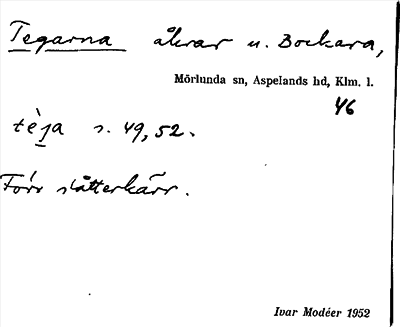 Tegarna åkrar u. Bockara,
Mörlunda sn, Aspelands hd, Klm. l.
46
tèja s. 49, 52.
Förr slåtterkärr.
Ivar Modéer 1952